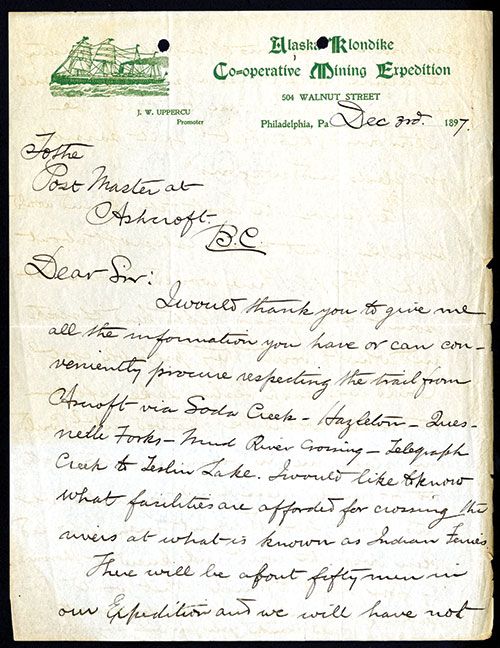 Alaska Klondike
Co-operative Mining Expedition
504 WALNUT STREET
J. W. UPPERCU
Promoter
Philadelphia, Pa Dec 3rd. 1897.
To the
Post Master at
Ashcroft.
B.C.
Dear Sir:
I would thank you to give me
all the information you have or can con-
veniently procure respecting the trail from
Ascroft via Soda Creek - Hazleton - Ques-
nelle Forks - Mud River Crossing - Telegraph
Creek to Teslin Lake. I would like to know
what facilities are afforded for crossing the
rivers at what is known as Indian Ferries
There will be about fifty men in
our Expedition and we will have not